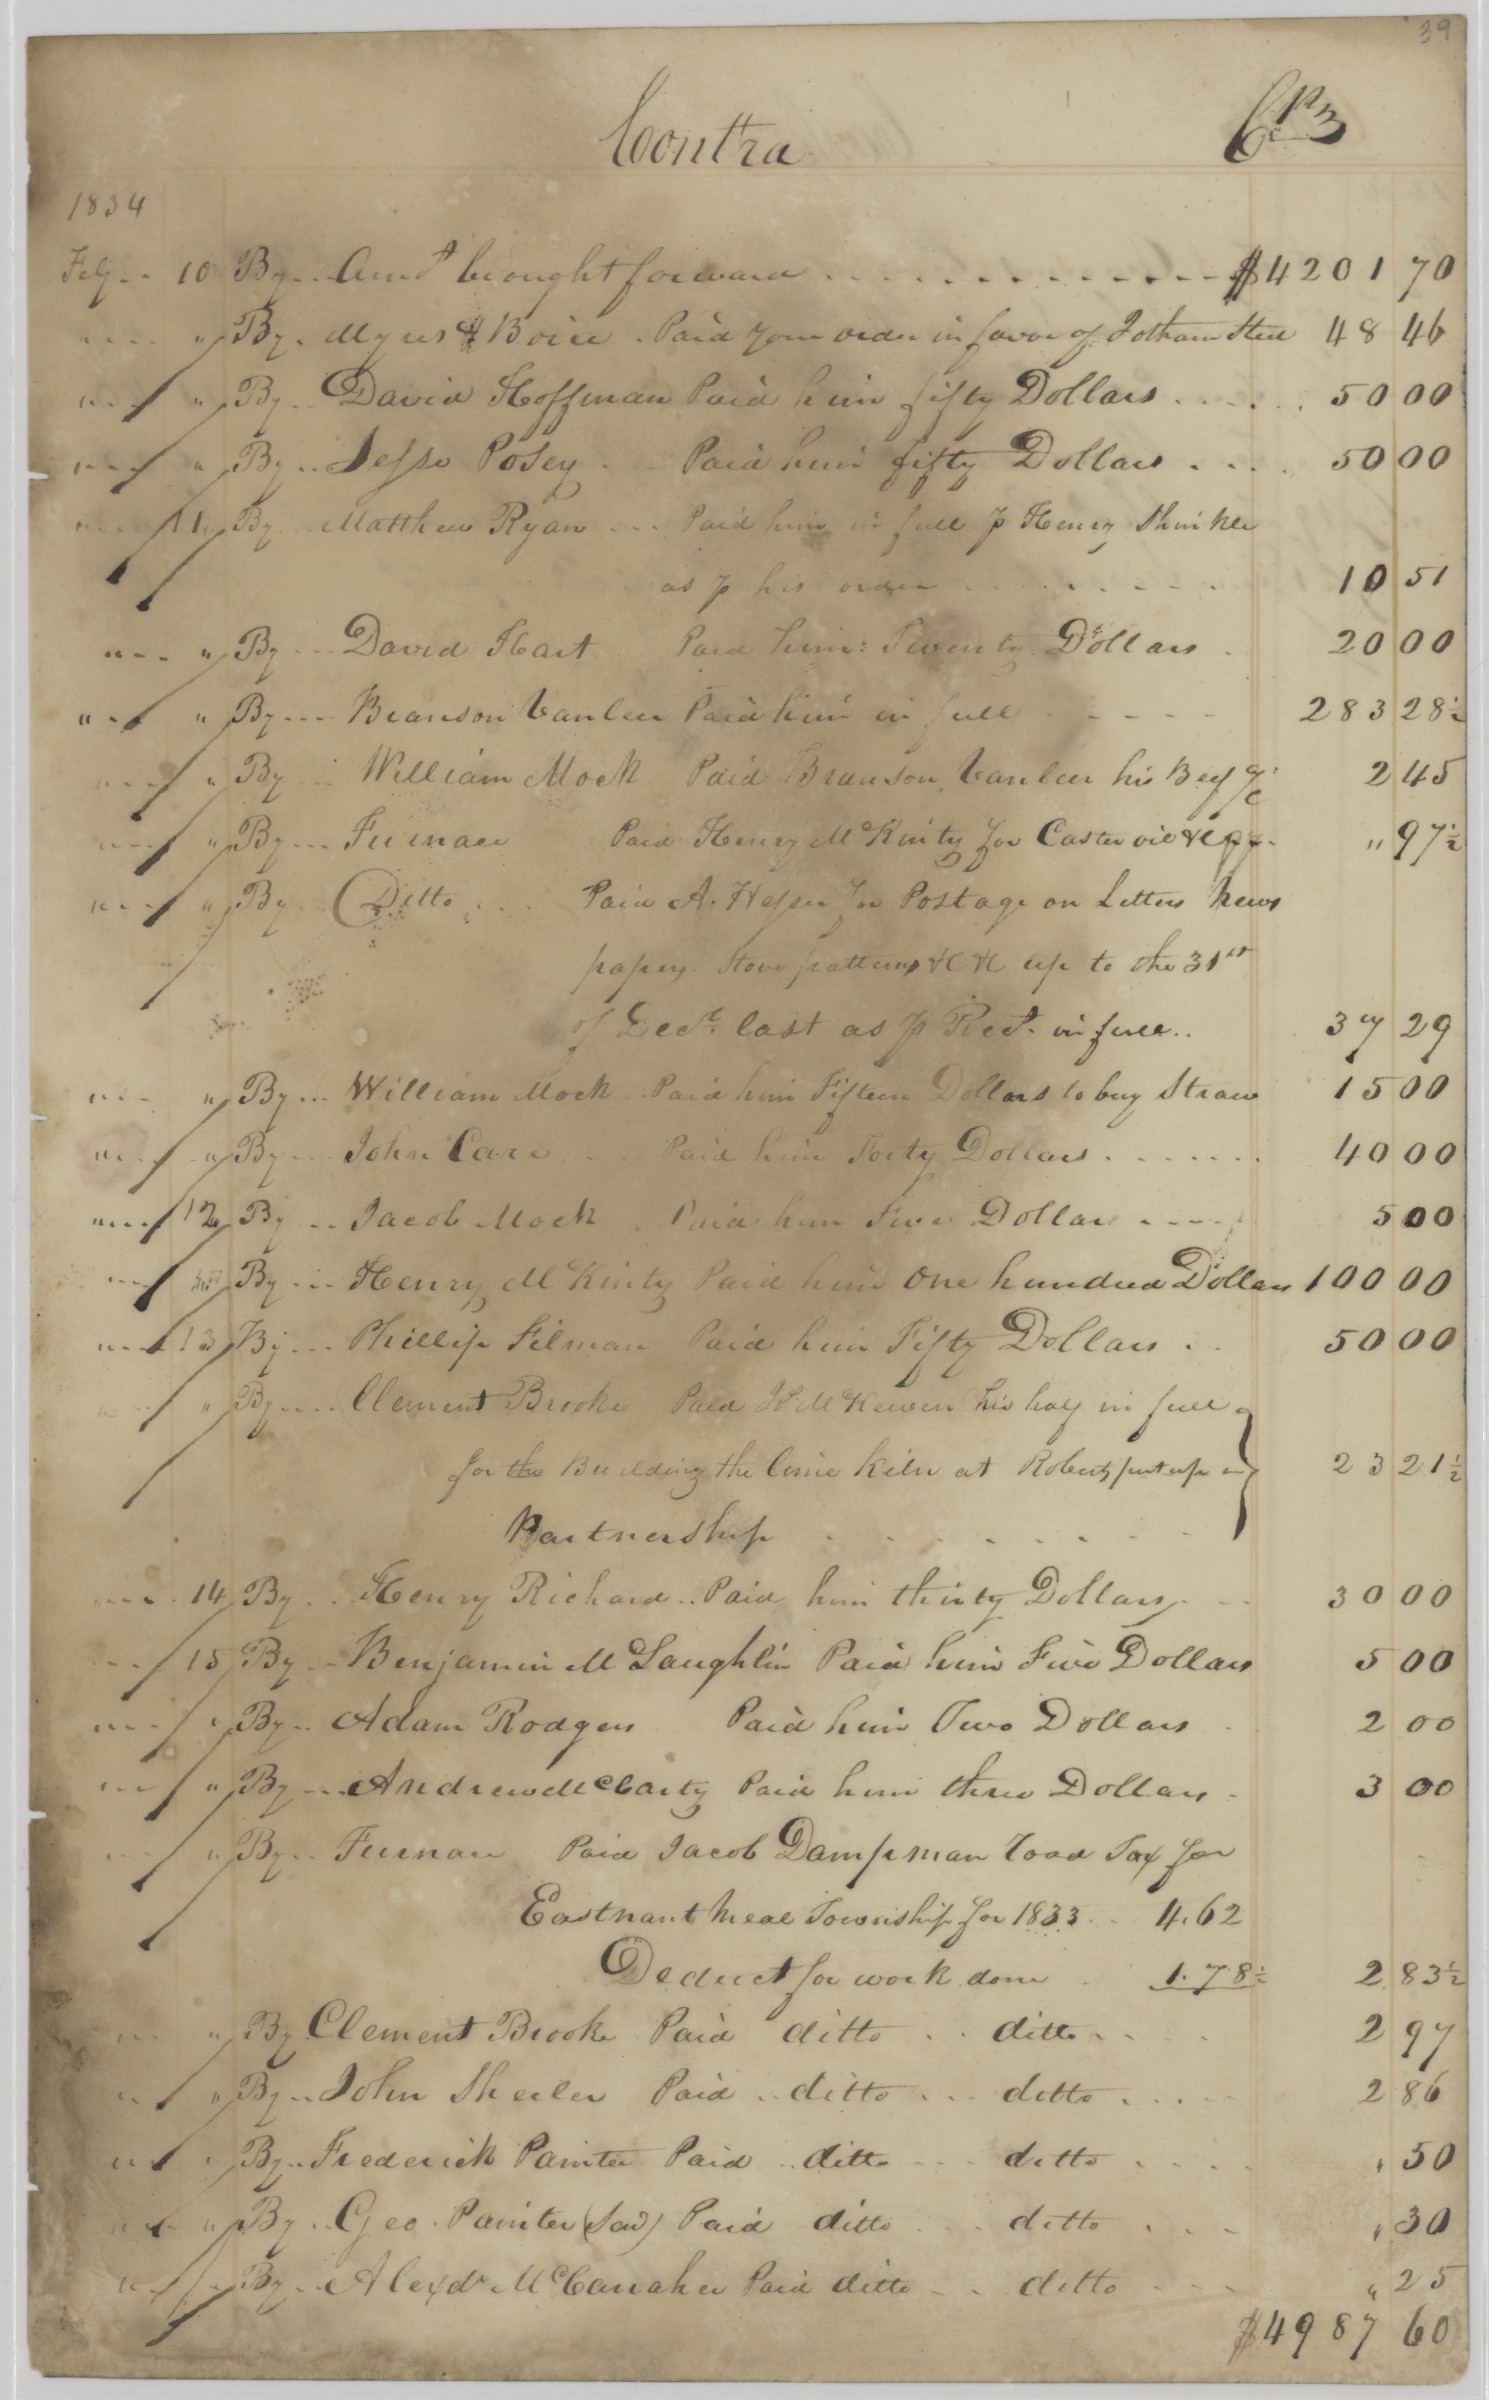 39
Contra Crs
1834
Feby 10 By Amt brought forward $4201 70
" " By Myres & Boice Paid your order in favor of Jotham Steel 48 46
" " By David Hoffman Paid him fifty Dollars 50 00
" " By Jesse Posey Paid him fifty Dollars 50 00
" 11 By Matthew Ryan Paid him in full p Henry Shinkle
as p his order 10 51
" " By David Hart Paid him Twenty Dollars 20 00
" " By Branson Vanleer Paid him in full 283 28½
" " By William Mock Paid Branson Vanleer his Beef a/c 2 45
" " By Furnace Paid Henry McKinty for Castor oil &c " 97½
" " By Ditto Paid A. Hesser for Postage on Letters News
papers Stove patterns &c &c up to the 31st
of Decr last as p Rect in full 37 29
" " By William Mock Paid him Fifteen Dollars to buy Straw 15 00
" " By John Care Paid him Forty Dollars 40 00
" 12 By Jacob Mock Paid him Five Dollars 5 00
" " By Henry McKinty Paid him One hundred Dollars 100 00
" 13 By Phillip Filman Paid him Fifty Dollars 50 00
" " By Clement Brooke Paid McKewen his half in full
for the Building the lime kiln at Roberts put up in 23 21½
Partnership
" 14 By Henry Richard Paid him thirty Dollars 30 00
" 15 By Benjamin McLaughlin Paid him Five Dollars 5 00
" " By Adam Rodgers Paid him Two Dollars 2 00
" " By Andrew McClarty Paid him three Dollars 3 00
" " By Furnace Paid Jacob Dampman road Tax for
Eastnantmeal Township for 1833 4.62
Deduct for work done 1.78½ 2 83½
" " By Clement Brooke Paid ditto ditto 2 97
" " By John Sheeler Paid ditto ditto 2 86
" " By Frederick Painter Paid ditto ditto " 50
" " By Geo. Painter (Sad) Paid ditto ditto " 30
" " By Alexdr McCanaher Paid ditto ditto " 25
$4987 60